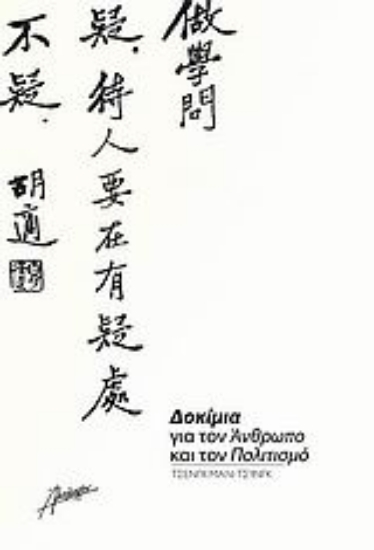 做學問
疑，待人要在有疑處
不疑．
胡適
Δοκίμια
για τον Άνθρωπο
και τον Πολιτισμό
ΤΣΕΝΓΚ ΜΑΝ-ΤΣ'ΙΝΓΚ